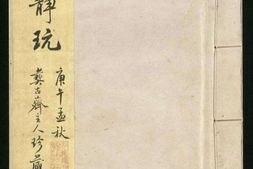 靜玩
庚午孟秋
龔古齋主人珍藏